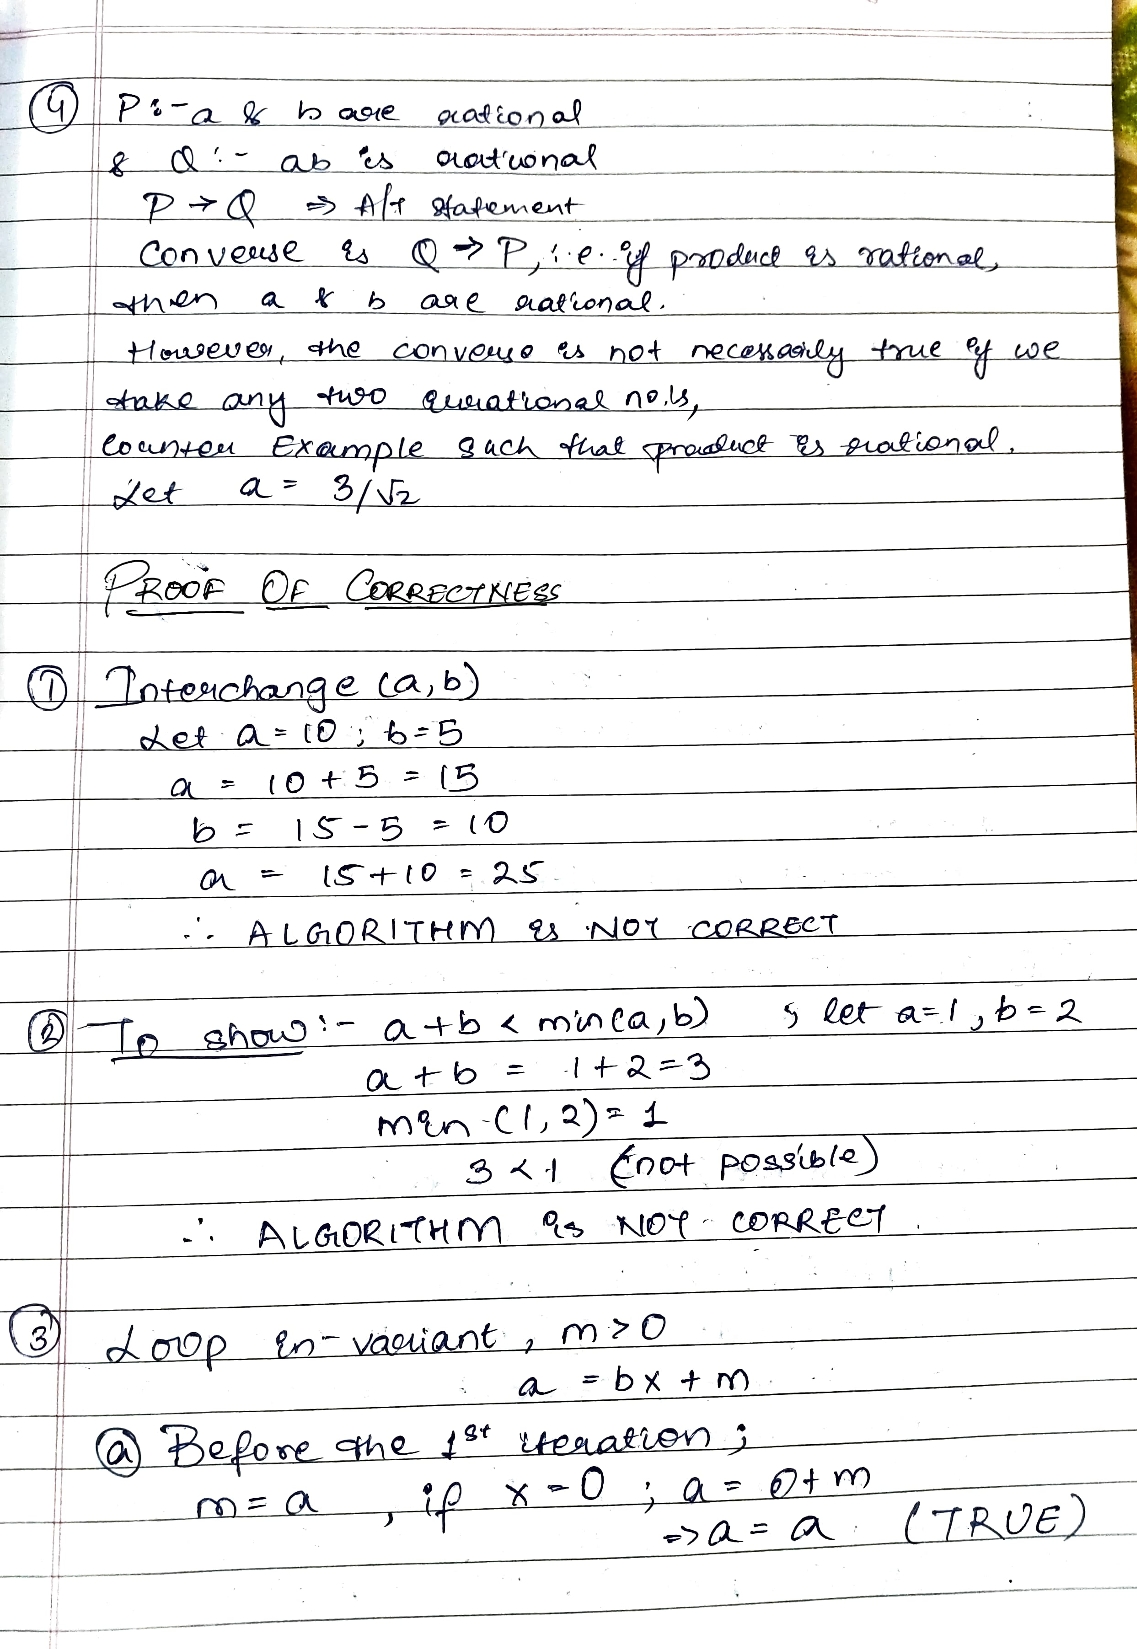 ④ P:- a & b are rational
& Q:- ab is rational
P → Q ⇒ A/t statement
Converse is Q → P, i.e. if product is rational,
then a & b are rational.
However, the converse is not necessarily true if we
take any two irrational no.s,
Counter Example such that product is rational.
Let a = 3/√2
PROOF OF CORRECTNESS
① Interchange (a,b)
Let a = 10 ; b = 5
a = 10 + 5 = 15
b = 15 - 5 = 10
a = 15 + 10 = 25
∴ ALGORITHM is NOT CORRECT
② To show :- a + b < min(a,b) ; let a=1, b=2
a + b = 1 + 2 = 3
min (1,2) = 1
3 < 1 (not possible)
∴ ALGORITHM is NOT CORRECT.
③ Loop in-variant, m > 0
a = bx + m
ⓐ Before the 1st iteration ;
m = a , if x = 0 ; a = 0 + m
⇒ a = a (TRUE)